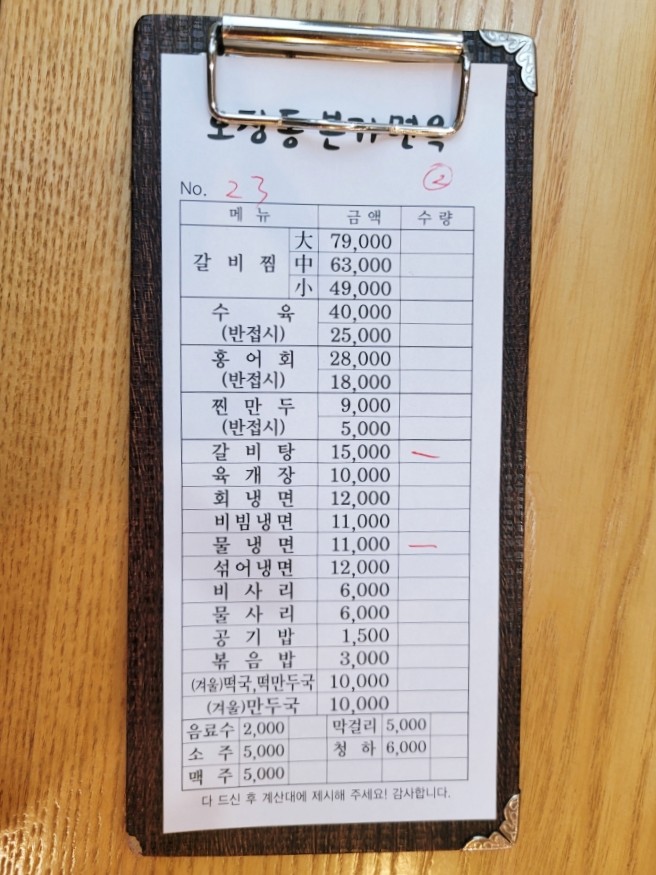 오장동 본가 면옥
No. 23
②
메 뉴 금 액 수 량
갈 비 찜 大 79,000
中 63,000
小 49,000
수 육 40,000
(반접시) 25,000
홍 어 회 28,000
(반접시) 18,000
찐 만 두 9,000
(반접시) 5,000
갈 비 탕 15,000 一
육 개 장 10,000
회 냉 면 12,000
비빔냉면 11,000
물 냉 면 11,000 一
섞어냉면 12,000
비 사 리 6,000
물 사 리 6,000
공 기 밥 1,500
볶 음 밥 3,000
(겨울)떡국,떡만두국 10,000
(겨울)만두국 10,000
음료수 2,000 막걸리 5,000
소 주 5,000 청 하 6,000
맥 주 5,000
다 드신 후 계산대에 제시해 주세요! 감사합니다.